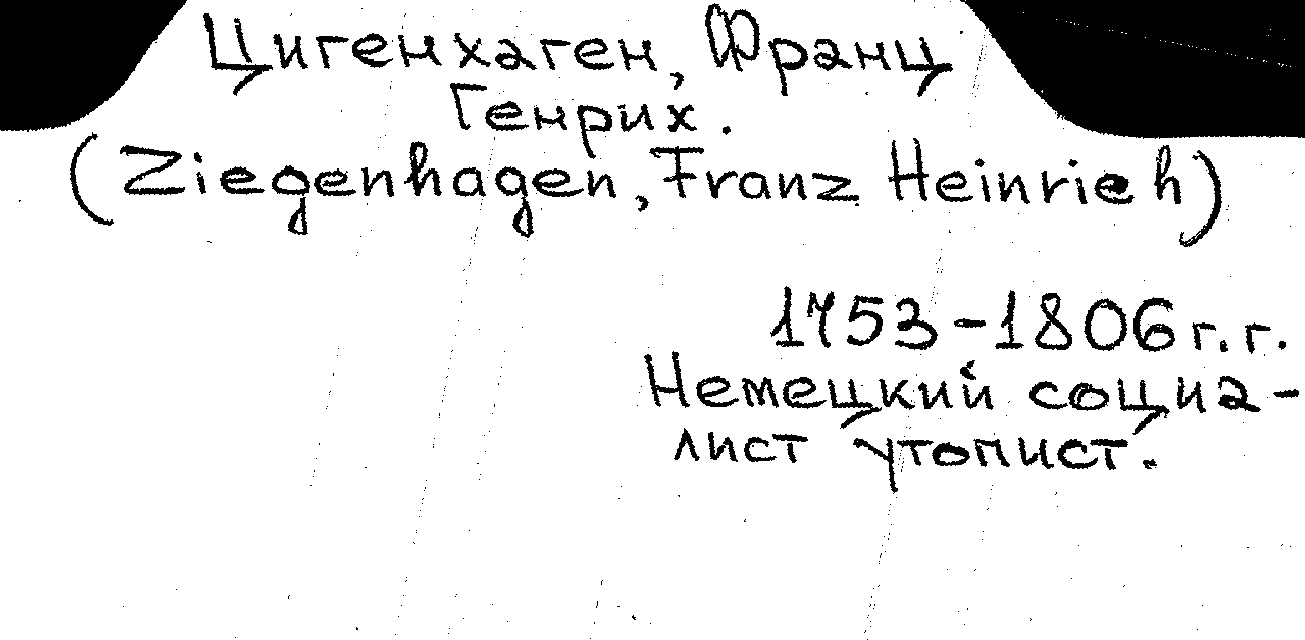 Цигенхаген, Франц
Генрих.
(Ziegenhagen, Franz Heinrich)
1753-1806 г.г.
Немецкий социа-
лист утопист.